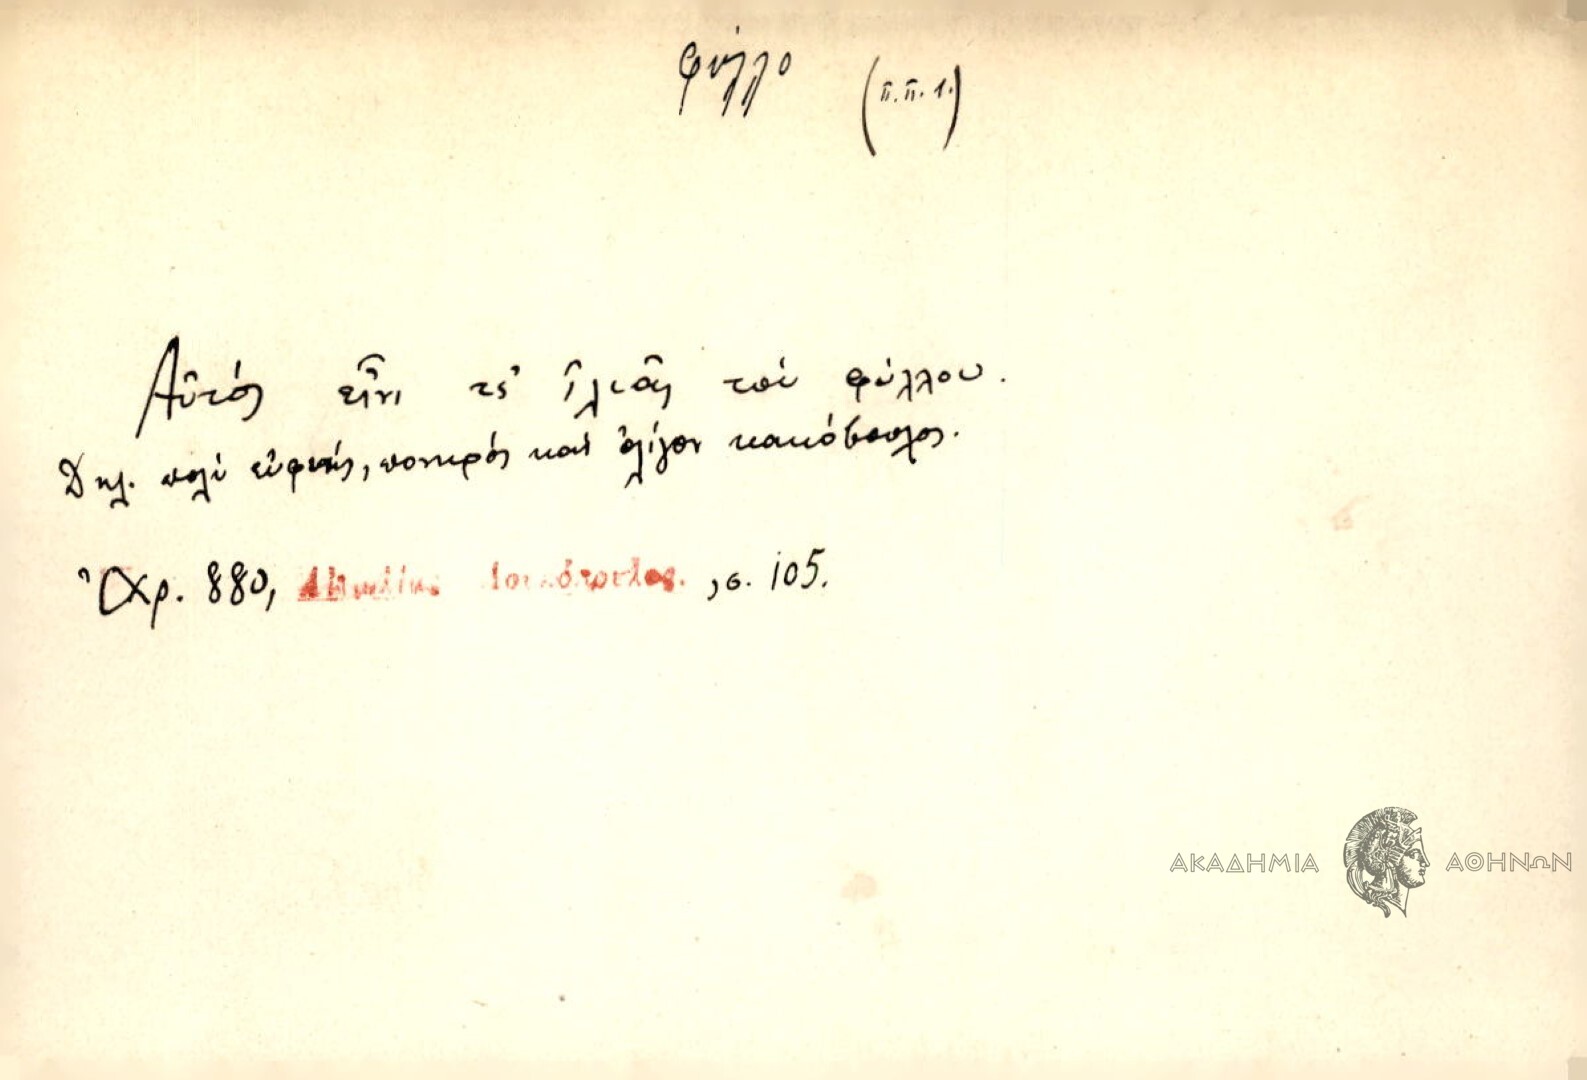 φύλλο (π.π.1.)
Αὐτός εἶνι τς' ἰλιᾶς τοὺ φύλλου.
Δηλ. πολύ εὐφυής, πονηρός καί ὀλίγον κακόβουλος.
Χρ. 880, , σ. 105.
ΑΚΑΔΗΜΙΑ ΑΘΗΝΩΝ